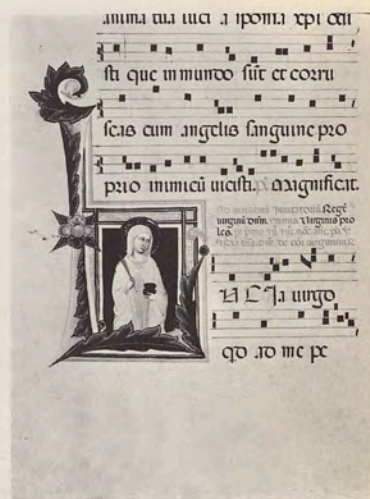 anima tua luci a sponsa xpi odi
sti que in mundo sūt et corru
scas cum angelis sanguine pro
prio inimicū uicisti. Magnificat.
Regē
uirginū dn̄m. Virginis pro
les.
V C Ia uirgo
qd ad me pe